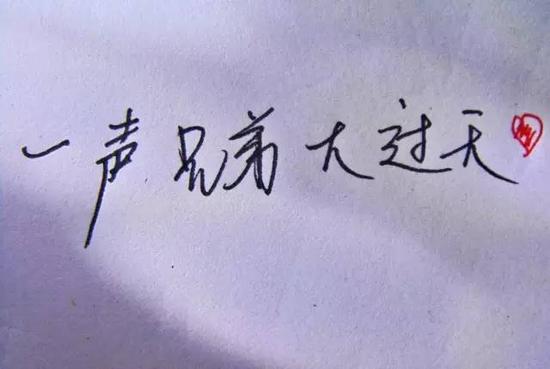 一声兄弟大过天